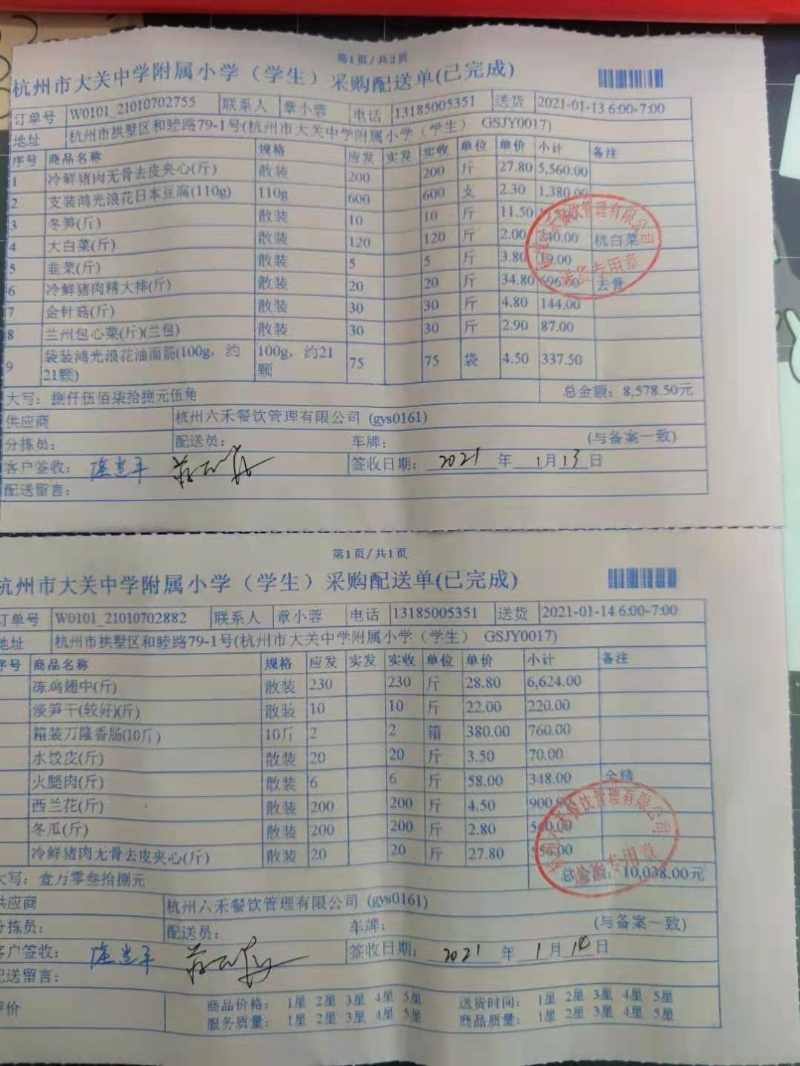 第1页/共2页
杭州市大关中学附属小学（学生）采购配送单(已完成)
订单号 W0101_21010702755 联系人 章小蓉 电话 13185005351 送货 2021-01-13 6:00-7:00
地址 杭州市拱墅区和睦路79-1号(杭州市大关中学附属小学（学生） GSJY0017)
序号 商品名称 规格 应发 实发 实收 单位 单价 小计 备注
1 冷鲜猪肉无骨去皮夹心(斤) 散装 200 200 斤 27.80 5,560.00
2 支装鸿光浪花日本豆腐(110g) 110g 600 600 支 2.30 1,380.00
3 冬笋(斤) 散装 10 10 斤 11.50
4 大白菜(斤) 散装 120 120 斤 2.00 240.00 杭白菜
5 韭菜(斤) 散装 5 5 斤 3.80 19.00
6 冷鲜猪肉精大排(斤) 散装 20 20 斤 34.80 696.00 去骨
7 金针菇(斤) 散装 30 30 斤 4.80 144.00
8 兰州包心菜(斤)(兰包) 散装 30 30 斤 2.90 87.00
9 袋装鸿光浪花油面筋(100g，约21颗) 100g，约21颗 75 75 袋 4.50 337.50
大写：捌仟伍佰柒拾捌元伍角 总金额：8,578.50元
供应商 杭州六禾餐饮管理有限公司 (gys0161)
分拣员： 配送员： 车牌： (与备案一致)
客户签收： 签收日期： 2021 年 1月13日
配送留言：
餐饮管理有限公司
送货专用章
第1页/共1页
杭州市大关中学附属小学（学生）采购配送单(已完成)
订单号 W0101_21010702882 联系人 章小蓉 电话 13185005351 送货 2021-01-14 6:00-7:00
地址 杭州市拱墅区和睦路79-1号(杭州市大关中学附属小学（学生） GSJY0017)
序号 商品名称 规格 应发 实发 实收 单位 单价 小计 备注
冻鸡翅中(斤) 散装 230 230 斤 28.80 6,624.00
淡笋干(较好)(斤) 散装 10 10 斤 22.00 220.00
箱装万隆香肠(10斤) 10斤 2 2 箱 380.00 760.00
水饺皮(斤) 散装 20 20 斤 3.50 70.00
火腿肉(斤) 散装 6 6 斤 58.00 348.00 全精
西兰花(斤) 散装 200 200 斤 4.50 900.00
冬瓜(斤) 散装 200 200 斤 2.80 560.00
冷鲜猪肉无骨去皮夹心(斤) 散装 20 20 斤 27.80
大写：壹万零叁拾捌元 总金额：10,038.00元
供应商 杭州六禾餐饮管理有限公司 (gys0161)
分拣员： 配送员： 车牌： (与备案一致)
客户签收： 签收日期： 2021 年 1月14日
配送留言：
餐饮管理有限公司
送货专用章
评价 商品价格： 1星 2星 3星 4星 5星 送货时间： 1星 2星 3星 4星 5星
服务质量： 1星 2星 3星 4星 5星 商品质量： 1星 2星 3星 4星 5星